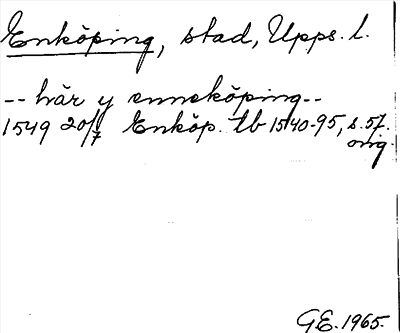 Enköping, stad, Upps. l.
-- här y enneköping --
1549 20/7 Enköp. tb 1540-95, s. 57.
orig.
GE. 1965.